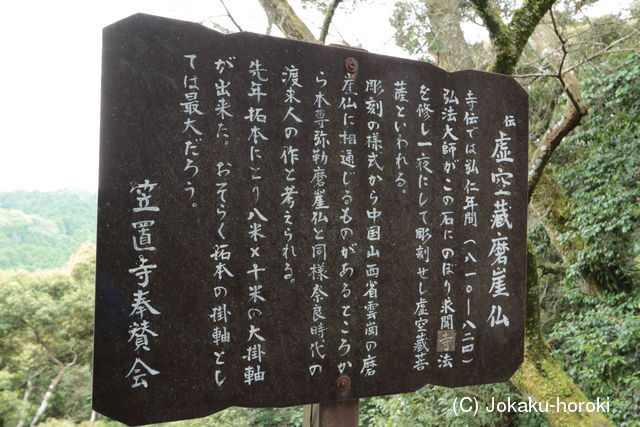 伝 虚空蔵磨崖仏
寺伝では弘仁年間(八一〇ー八二四)
弘法大師がこの石にのぼり求聞寺法
を修し一夜にして彫刻せし虚空蔵菩
薩といわれる。
彫刻の様式から中国山西省雲崗の磨
崖仏に相通じるものがあるところか
ら本尊弥勒磨崖仏と同様奈良時代の
渡来人の作と考えられる。
先年拓本にとり八米×十米の大掛軸
が出来た。おそらく拓本の掛軸とし
ては最大だろう。
笠置寺奉賛会
(C) Jokaku-horoki